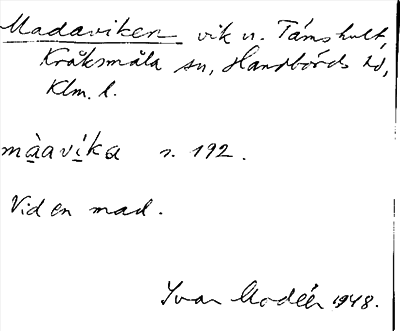 Madaviken vik n. Támshult,
Kråksmåla sn, Handbörds hd,
Klm. l.
màavíka s. 192.
Vid en mad.
Ivar Modéer 1948.